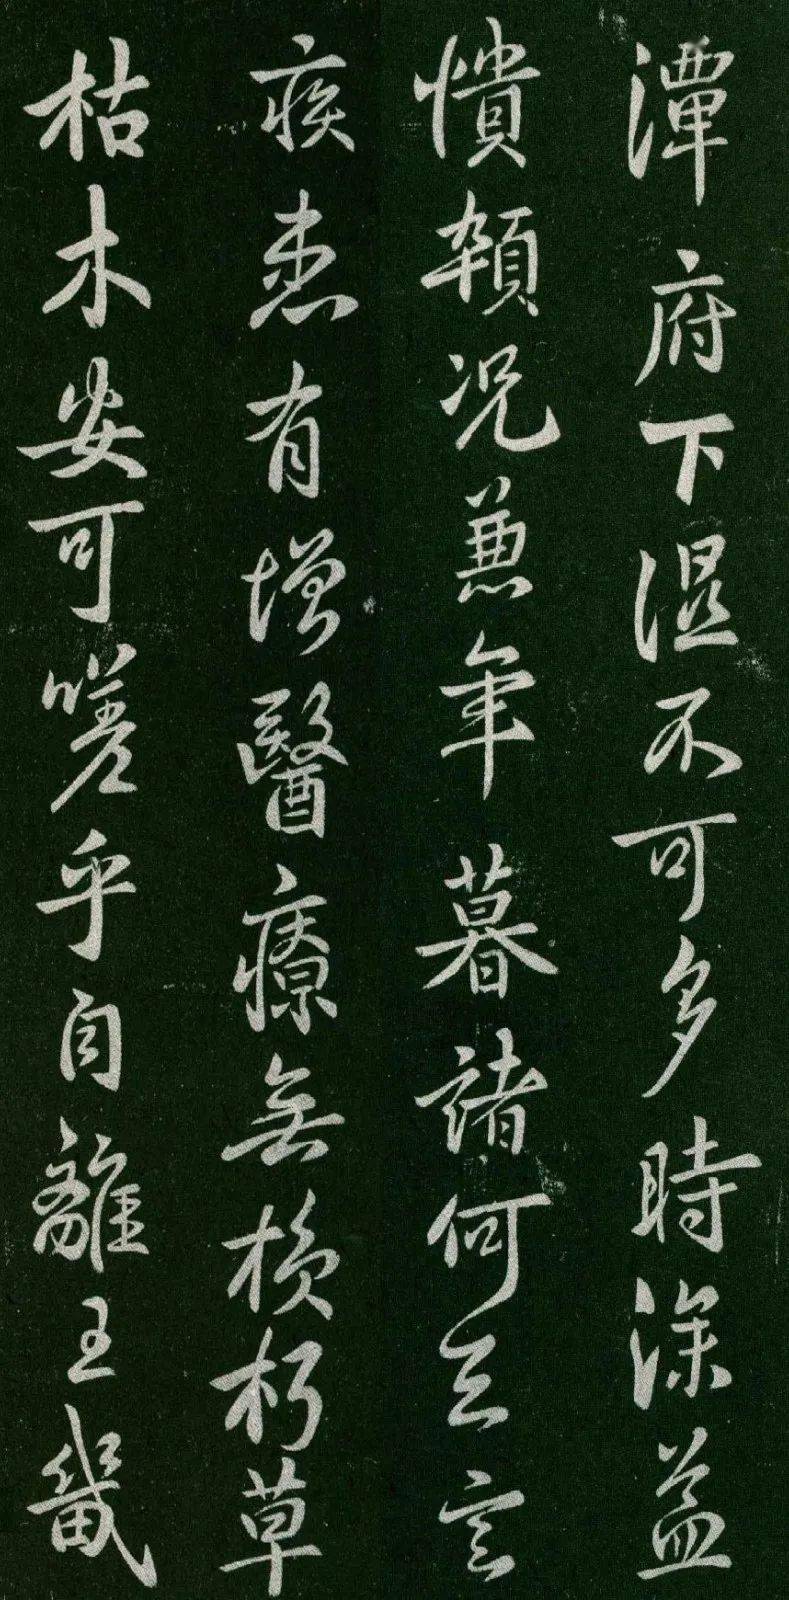 潭府下湿不可多時深益
憒顇况兼年暮諸何足言
疾患有增醫療無損朽草
枯木安可嗟乎自離王畿